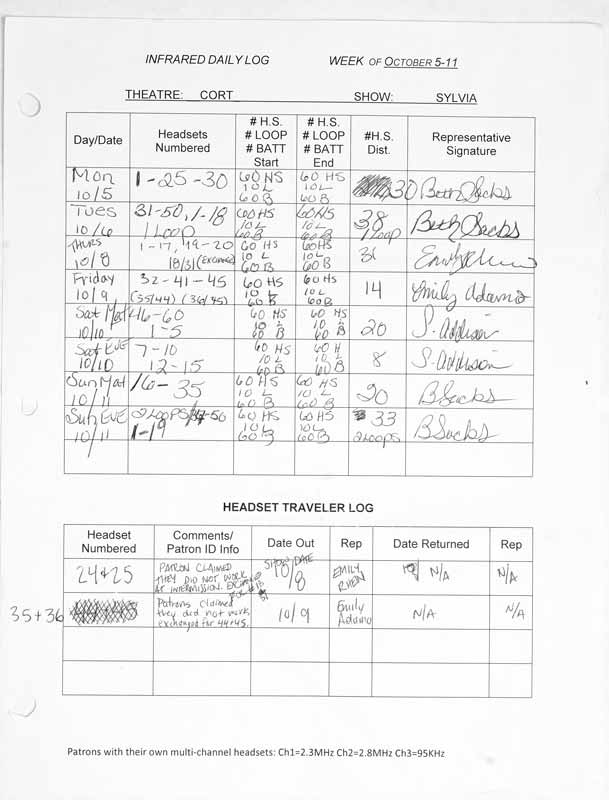 INFRARED DAILY LOG WEEK OF OCTOBER 5-11
THEATRE: CORT SHOW: SYLVIA
Day/Date Headsets Numbered # H.S. # LOOP # BATT Start # H.S. # LOOP # BATT End #H.S. Dist. Representative Signature
Mon 10/5 1-25-30 60 HS 10 L 60 B 60 HS 10 L 60 B 30 Beth Sacks
Tues 10/6 31-50, 1-18 1 Loop 60 HS 10 L 60 B 60 HS 10 L 60 B 38 1 Loop Beth Sacks
THURS 10/8 1-17, 19-20 18/31 (EXCHANGE) 60 HS 10 L 60 B 60 HS 10 L 60 B 31 Emily
Friday 10/9 32-41-45 (35/44) (36/45) 60 HS 10 L 60 B 60 HS 10 L 60 B 14 Emily Adams
Sat Mat 10/10 46-60 1-5 60 HS 10 L 60 B 60 HS 10 L 60 B 20 S. Addison
Sat EVE 10/10 7-10 12-15 60 HS 10 L 60 B 60 H 10 L 60 B 8 S. Addison
Sun Mat 10/11 16-35 60 HS 10 L 60 B 60 HS 10 L 60 B 20 B Sacks
Sun EVE 10/11 2 LOOPS -50 1-19 60 HS 10 L 60 B 60 HS 10 L 60 B 33 2 LOOPS B Sacks
HEADSET TRAVELER LOG
Headset Numbered Comments/ Patron ID Info Date Out Rep Date Returned Rep
24+25 PATRON CLAIMED THEY DID NOT WORK AT INTERMISSION. SHOW DATE 10/8 EMILY N/A N/A
35+36 Patrons claimed they did not work, exchanged for 44+45. 10/9 Emily Adams N/A N/A
Patrons with their own multi-channel headsets: Ch1=2.3MHz Ch2=2.8MHz Ch3=95KHz